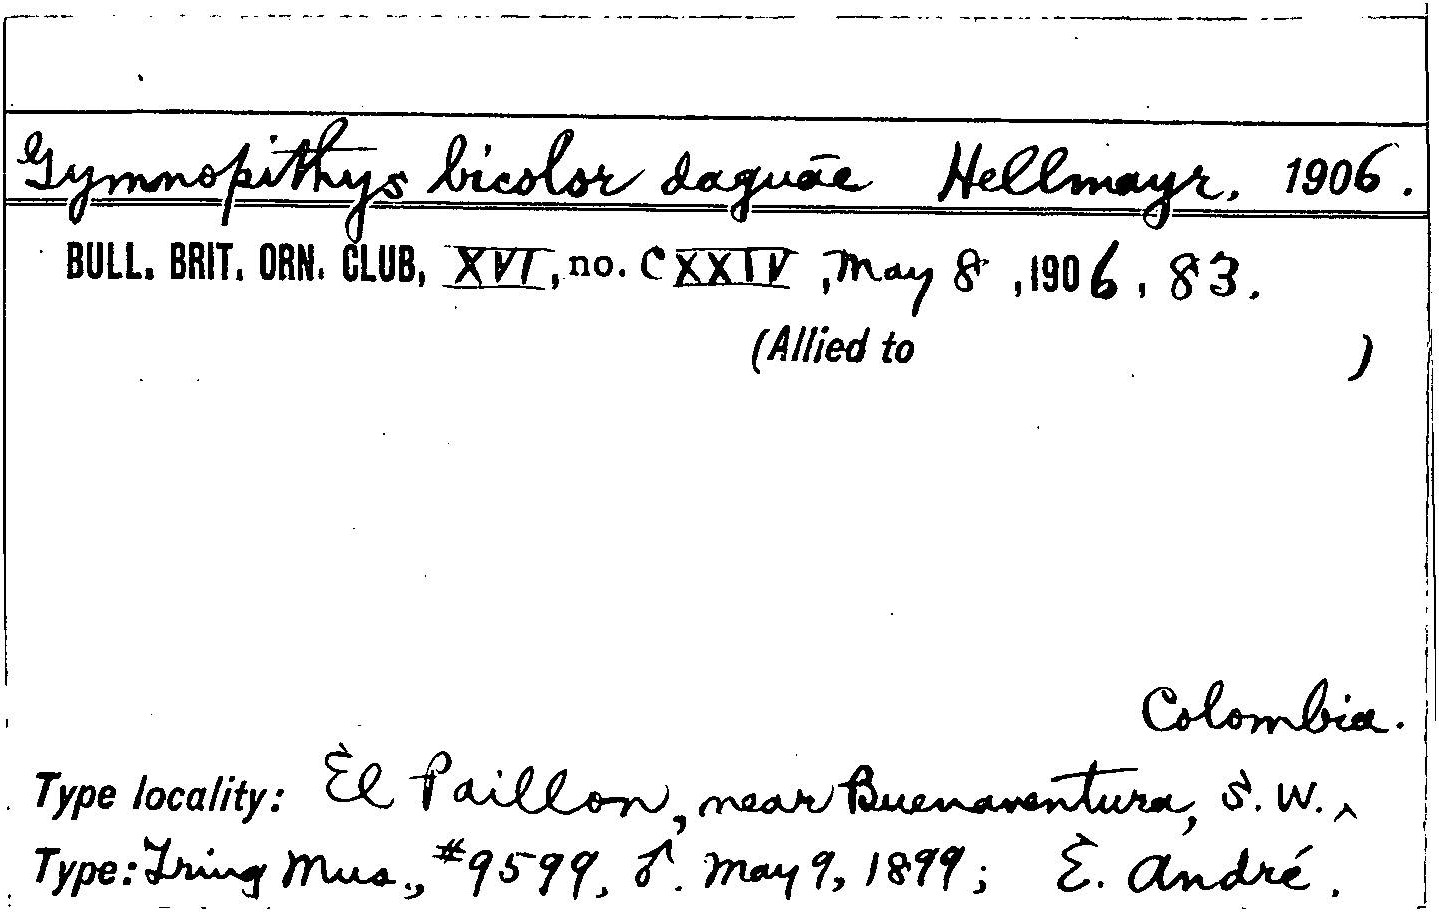 Gymnopithys bicolor daguae Hellmayr, 1906.
BULL. BRIT. ORN. CLUB, XVI, no. CXXIV, May 8, 1906, 83.
(Allied to )
Colombia.
Type locality: El Paillon, near Buenaventura, S. W. ^
Type: Tring Mus., #9599, ♂. May 9, 1899; E. André.